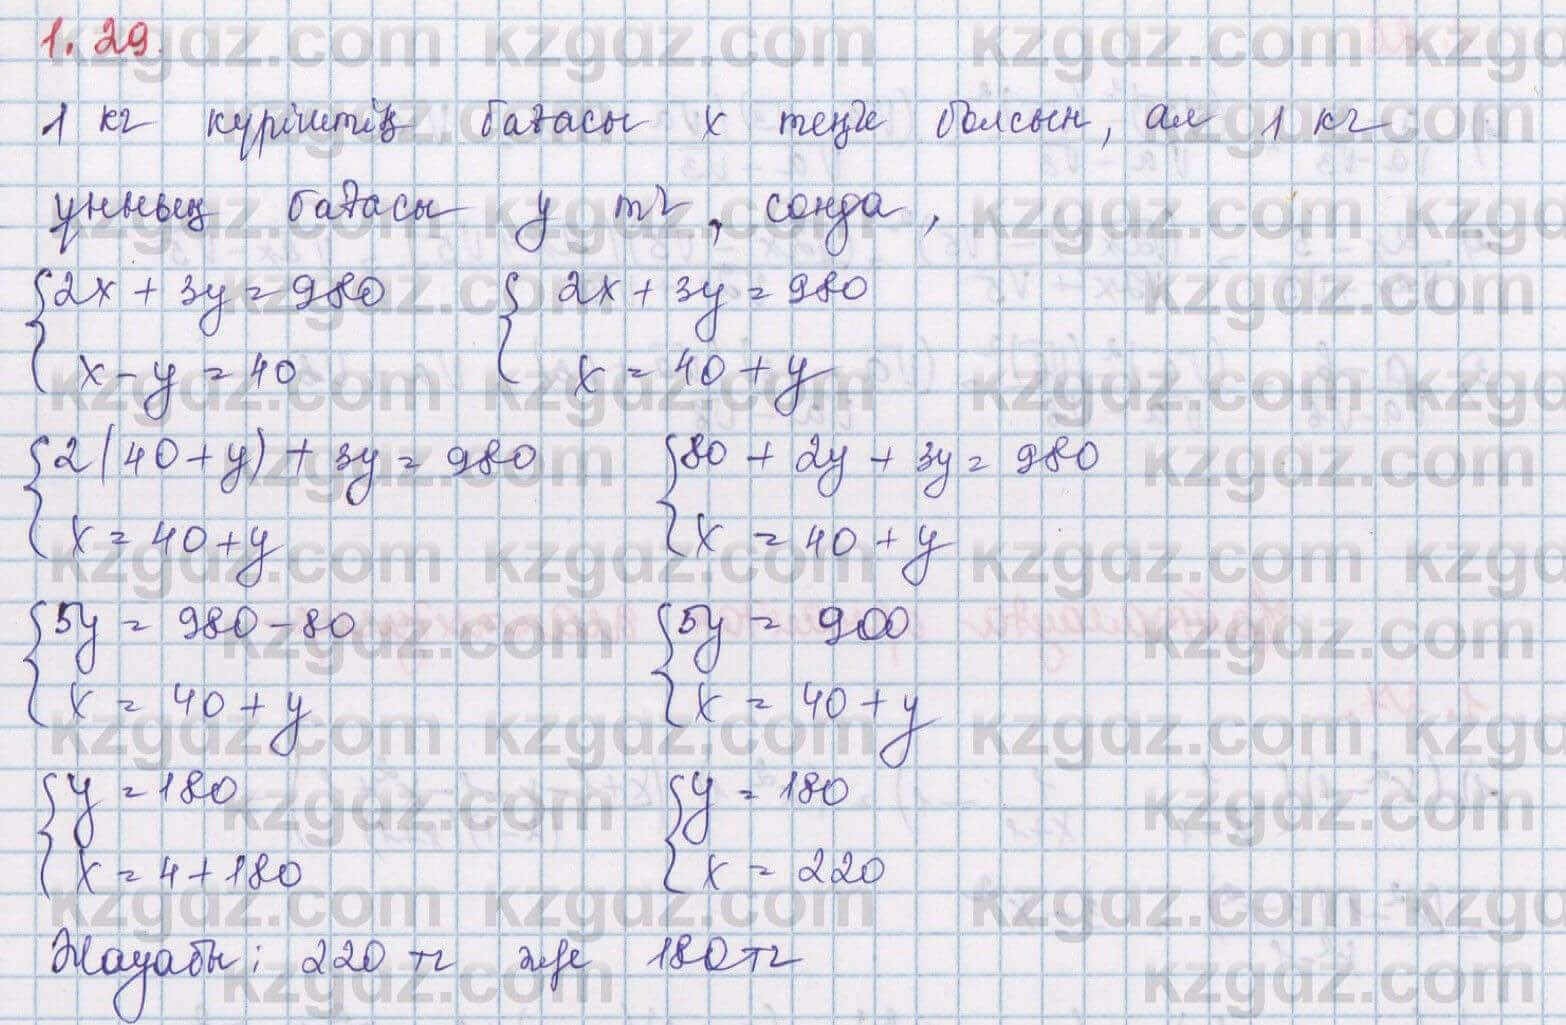 1.29.
1 кг күріштің бағасы x теңге болсын, ал 1 кг
ұнның бағасы y тг, сонда,
{2x + 3y = 980 { 2x + 3y = 980
x - y = 40 x = 40 + y
{2(40 + y) + 3y = 980 {80 + 2y + 3y = 980
x = 40 + y x = 40 + y
{5y = 980 - 80 {5y = 900
x = 40 + y x = 40 + y
{y = 180 {y = 180
x = 4 + 180 x = 220
Жауабы: 220 тг және 180 тг
kzgdz.com